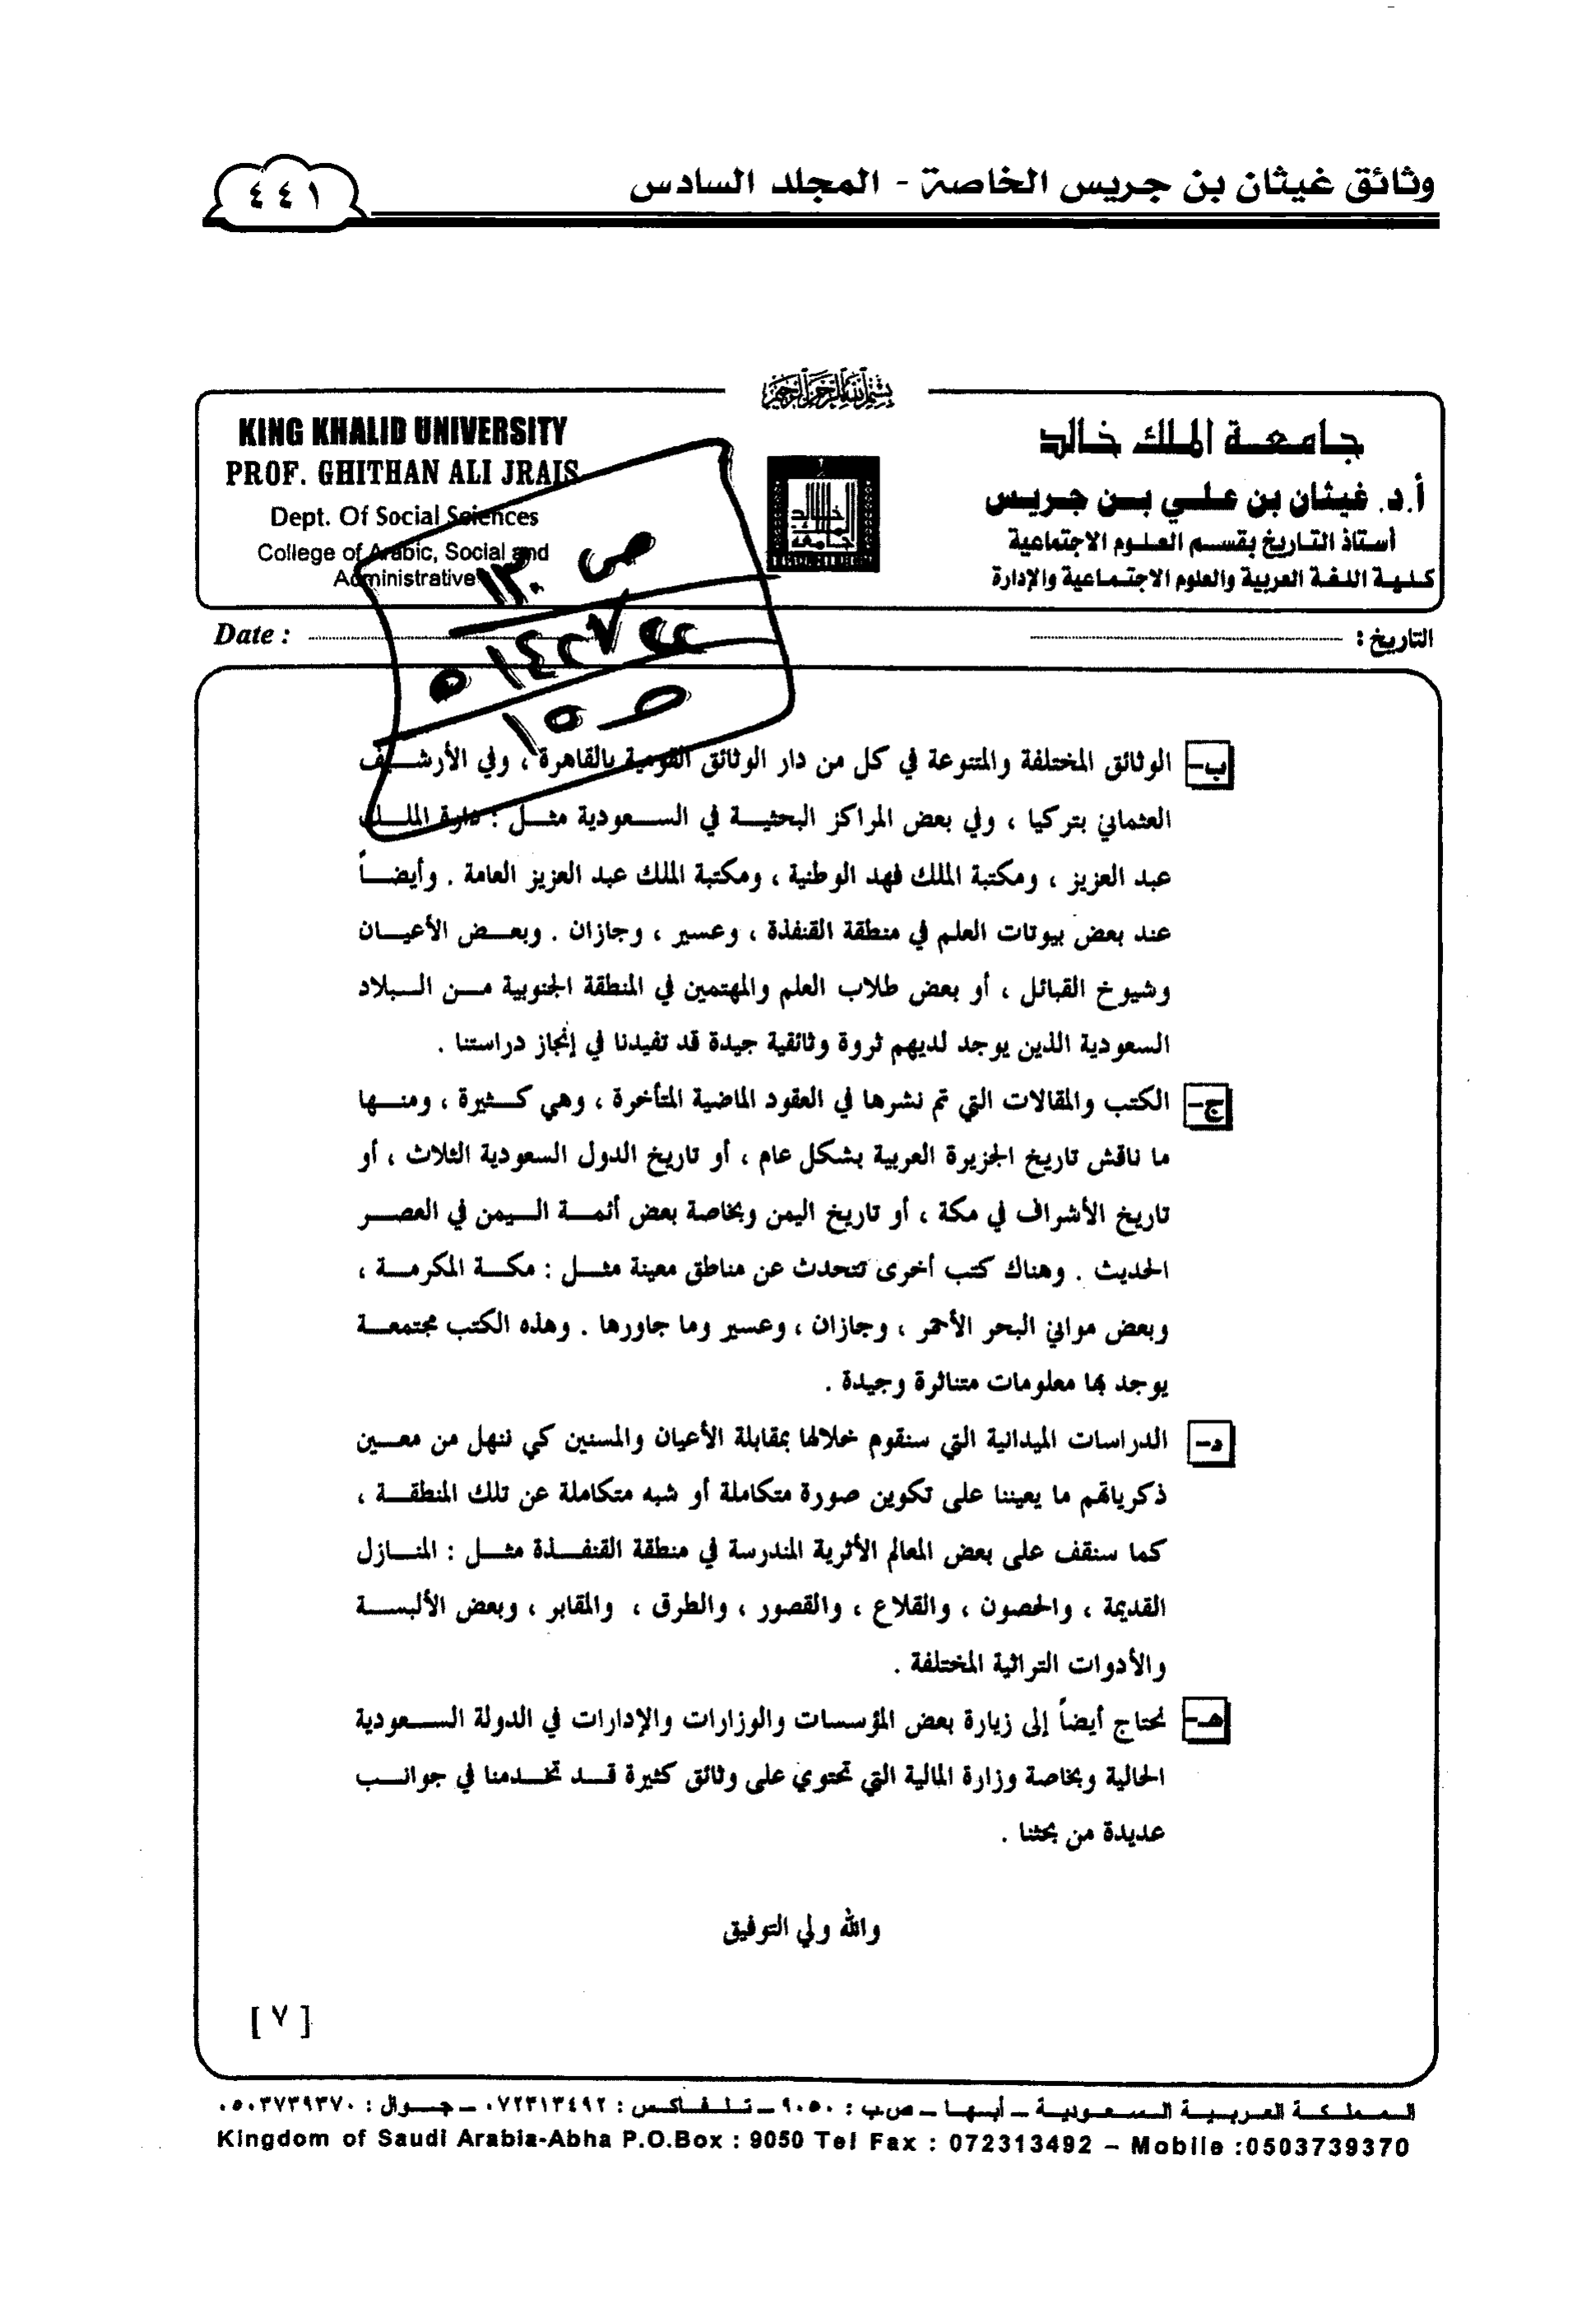 وثائق غيثان بن جريس الخاصة - المجلد السادس
٤٤١
KING KHALID UNIVERSITY
PROF. GHITHAN ALI JRAIS
Dept. Of Social Sciences
College of Arabic, Social and
Administrative
جامعة الملك خالد
أ.د. غيثان بن علي بن جريس
أستاذ التاريخ بقسم العلوم الاجتماعية
كلية اللغة العربية والعلوم الاجتماعية والإدارة
ص ١٣٠
١٤٢٧ هـ
ص ١٥
Date :
التاريخ :
ب- الوثائق المختلفة والمتنوعة في كل من دار الوثائق القومية بالقاهرة ، وفي الأرشيف
العثماني بتركيا ، وفي بعض المراكز البحثية في السعودية مثل : دارة الملك
عبد العزيز ، ومكتبة الملك فهد الوطنية ، ومكتبة الملك عبد العزيز العامة . وأيضاً
عند بعض بيوتات العلم في منطقة القنفذة ، وعسير ، وجازان . وبعض الأعيان
وشيوخ القبائل ، أو بعض طلاب العلم والمهتمين في المنطقة الجنوبية من البلاد
السعودية الذين يوجد لديهم ثروة وثائقية جيدة قد تفيدنا في إنجاز دراستنا .
ج- الكتب والمقالات التي تم نشرها في العقود الماضية المتأخرة ، وهي كثيرة ، ومنها
ما ناقش تاريخ الجزيرة العربية بشكل عام ، أو تاريخ الدول السعودية الثلاث ، أو
تاريخ الأشراف في مكة ، أو تاريخ اليمن وبخاصة بعض أئمة اليمن في العصر
الحديث . وهناك كتب أخرى تتحدث عن مناطق معينة مثل : مكة المكرمة ،
وبعض موانئ البحر الأحمر ، وجازان ، وعسير وما جاورها . وهذه الكتب مجتمعة
يوجد بها معلومات متناثرة وجيدة .
د- الدراسات الميدانية التي سنقوم خلالها بمقابلة الأعيان والمسنين كي ننهل من معين
ذكرياتهم ما يعيننا على تكوين صورة متكاملة أو شبه متكاملة عن تلك المنطقة ،
كما سنقف على بعض المعالم الأثرية المندرسة في منطقة القنفذة مثل : المنازل
القديمة ، والحصون ، والقلاع ، والقصور ، والطرق ، والمقابر ، وبعض الألبسة
والأدوات التراثية المختلفة .
هـ- نحتاج أيضاً إلى زيارة بعض المؤسسات والوزارات والإدارات في الدولة السعودية
الحالية وبخاصة وزارة المالية التي تحتوي على وثائق كثيرة قد تخدمنا في جوانب
عديدة من بحثنا .
والله ولي التوفيق
[ ٧ ]
المملكة العربية السعودية - أبها - ص.ب : ٩٠٥٠ - تلفاكس : ٠٧٢٣١٣٤٩٢ - جوال : ٠٥٠٣٧٣٩٣٧٠
Kingdom of Saudi Arabia-Abha P.O.Box : 9050 Tel Fax : 072313492 – Mobile :0503739370